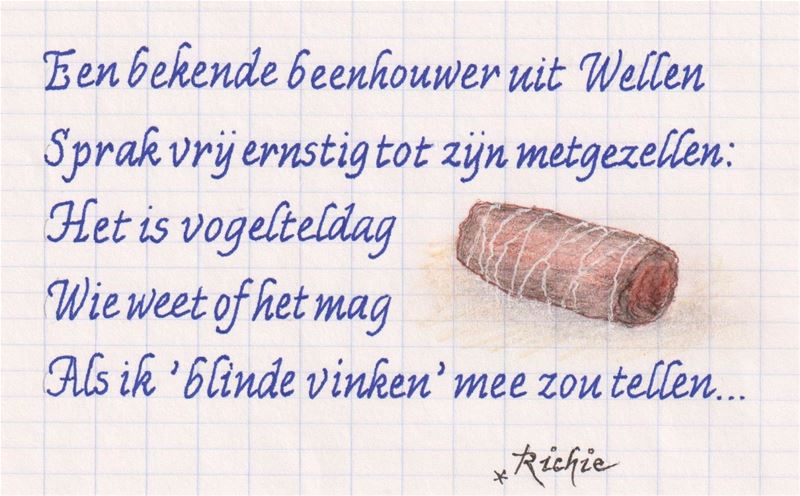 Een bekende beenhouwer uit Wellen
Sprak vrij ernstig tot zijn metgezellen:
Het is vogelteldag
Wie weet of het mag
Als ik 'blinde vinken' mee zou tellen...
*Richie